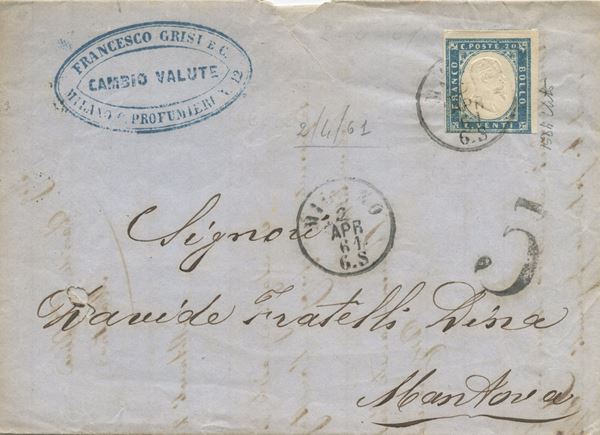 FRANCESCO GRISI E C.
CAMBIO VALUTE
MILANO C. PROFUMIERI N. 12
C. POSTE 20
FRANCO
BOLLO
C. VENTI
APR
61
6.S
2/4/61
MILANO
2
APR
61
6.S
Signori
Davide Fratelli Dina
Mantova